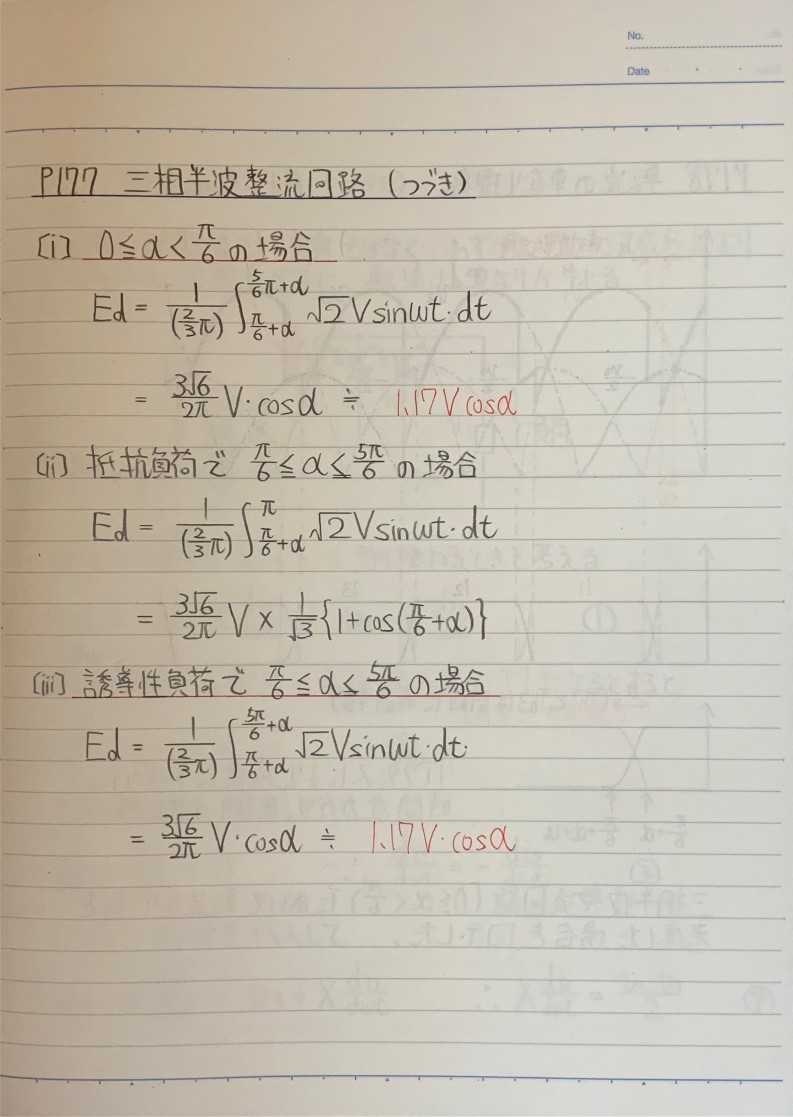 No.
Date
P177 三相半波整流回路 (つづき)
〔i〕 0≦α<π/6 の場合
Ed = 1/(2/3π) ∫_{π/6+α}^{5/6π+α} √2Vsinωt・dt
= 3√6/2π V・cosα ≒ 1.17Vcosα
〔ii〕 抵抗負荷で π/6≦α≦5π/6 の場合
Ed = 1/(2/3π) ∫_{π/6+α}^{π} √2Vsinωt・dt
= 3√6/2π V × 1/√3{1+cos(π/6+α)}
〔iii〕 誘導性負荷で π/6≦α≦5π/6 の場合
Ed = 1/(2/3π) ∫_{π/6+α}^{5π/6+α} √2Vsinωt・dt
= 3√6/2π V・cosα ≒ 1.17V・cosα